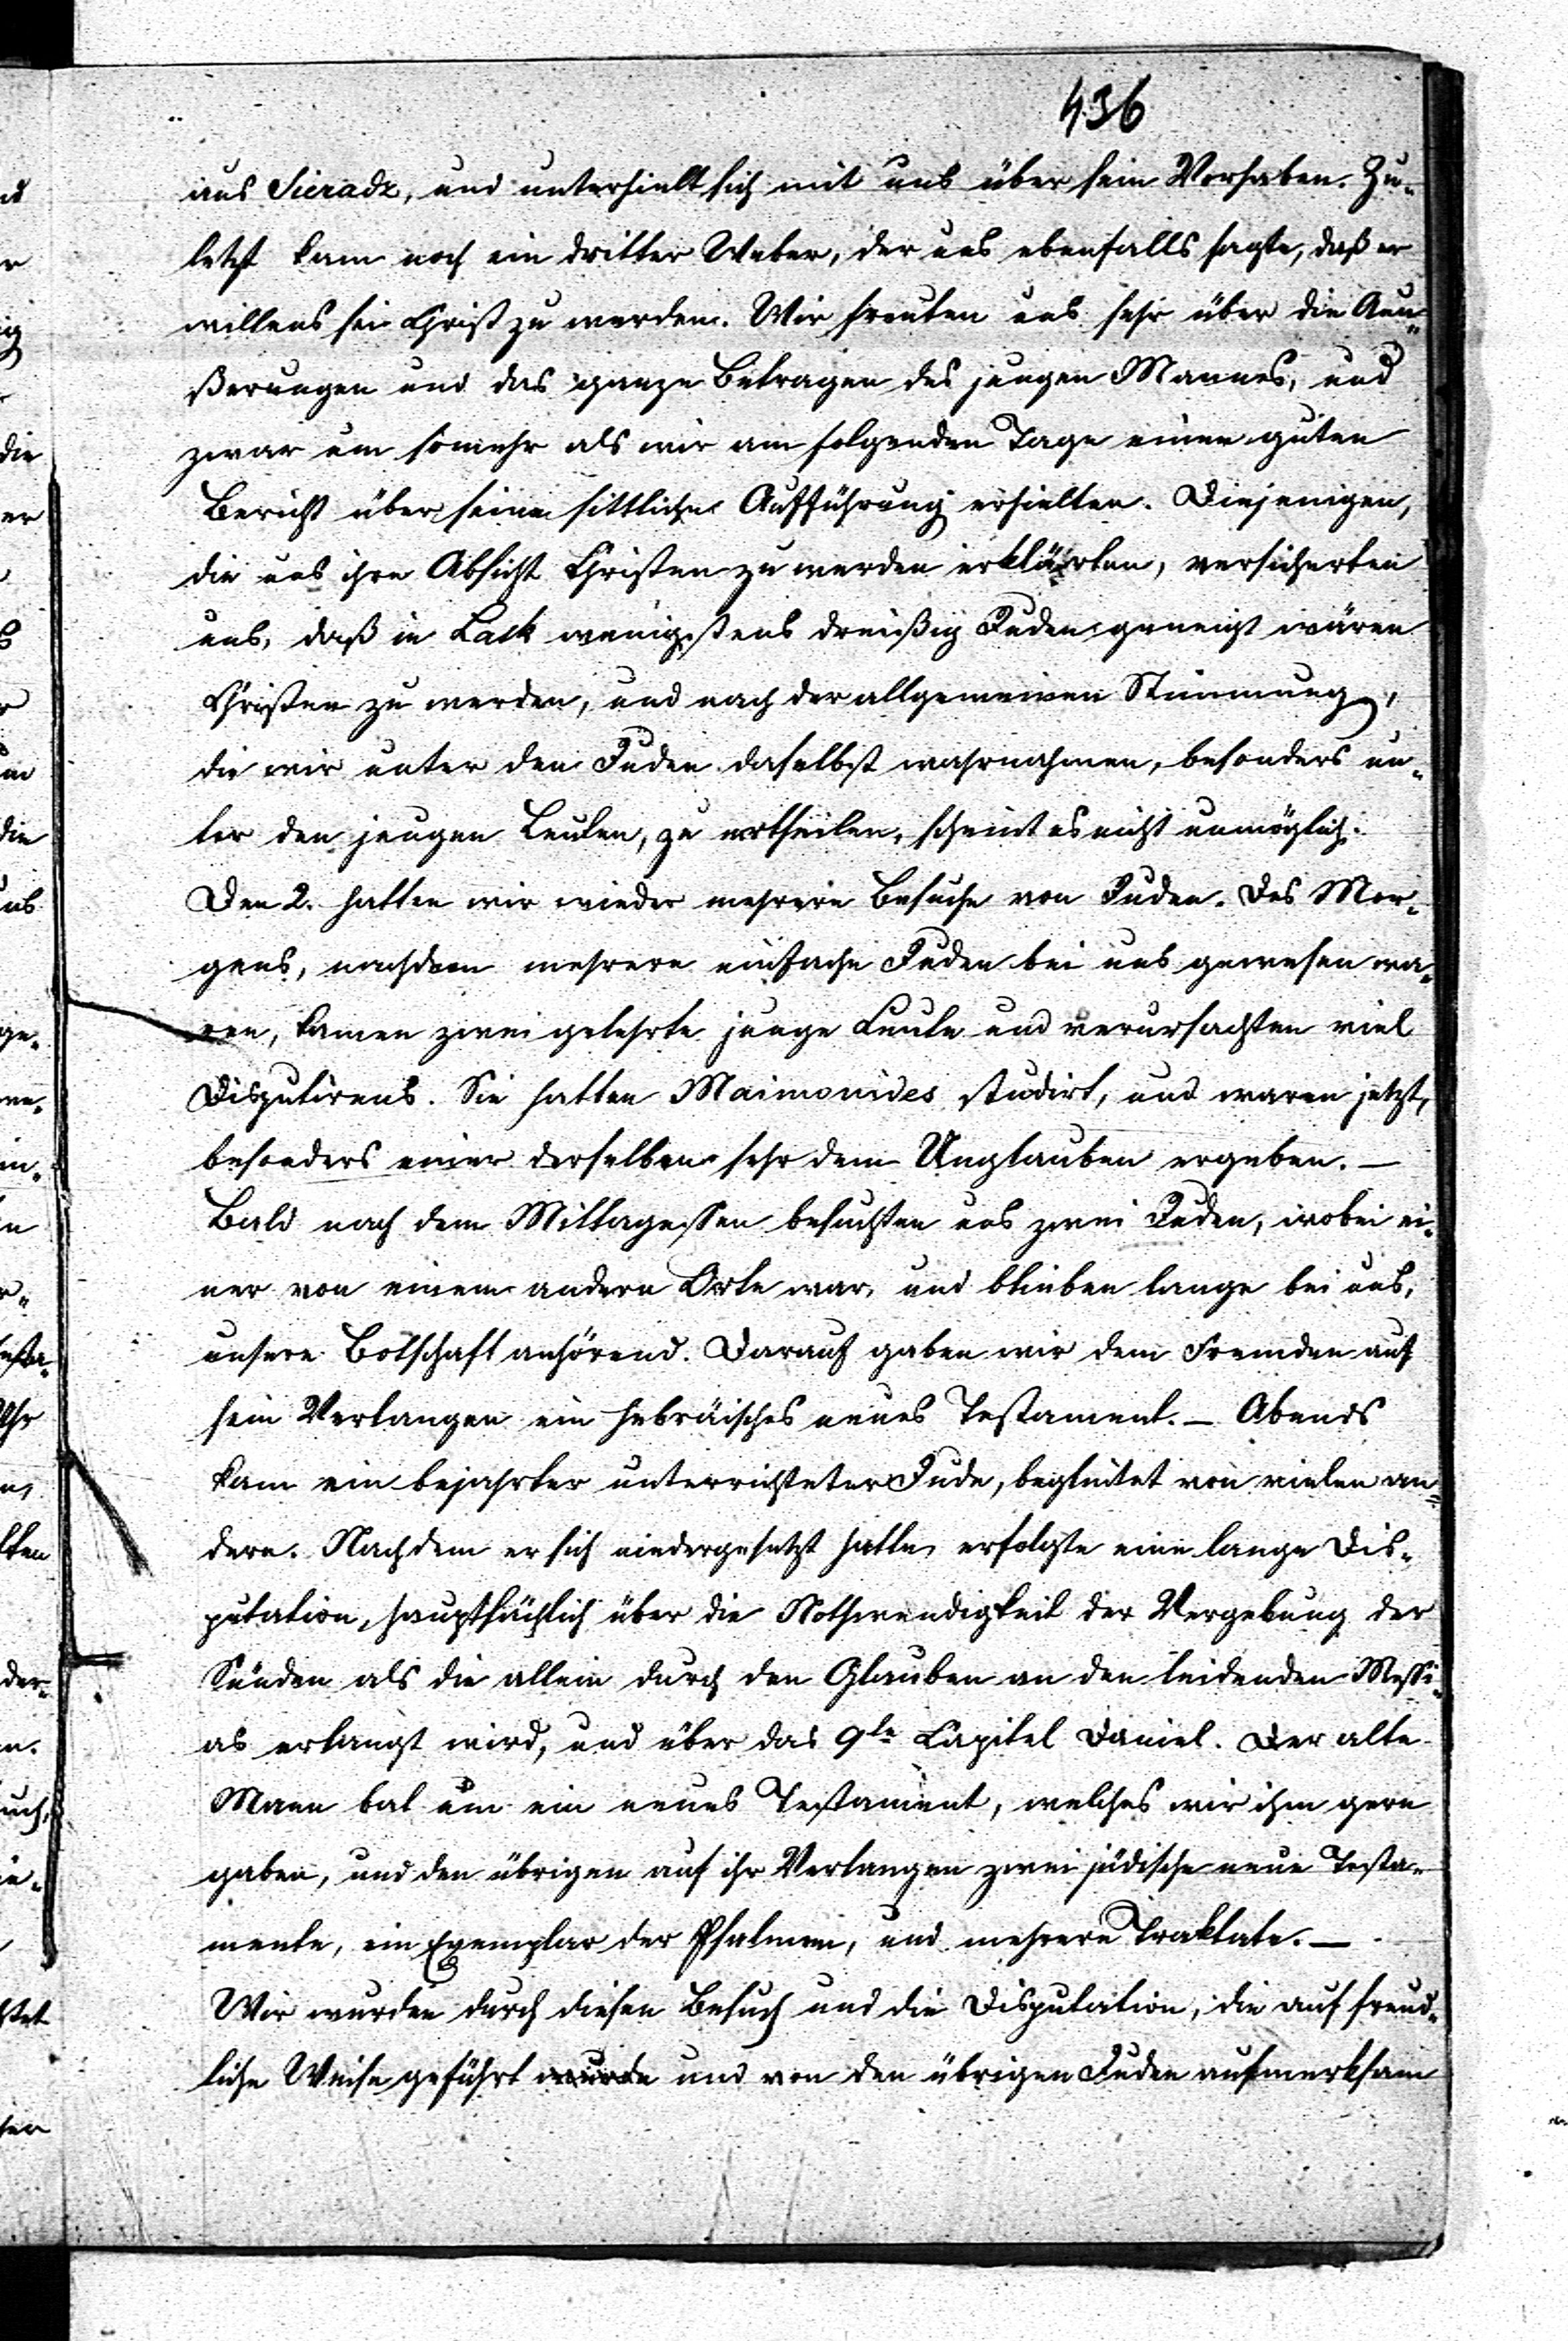 436
aus Sieradz, und unterhielt sich mit uns über sein Vorhaben. Zu-
letzt kam noch ein dritter Weber, der uns ebenfalls sagte, daß er
willens sei Christ zu werden. Wir freuten uns sehr über die Aeu-
ßerungen und das ganze Betragen des jungen Mannes, und
zwar um somehr als wir am folgenden Tage einen guten
Bericht über seine sittliche Aufführung erhielten. Diejenigen,
die uns ihre Absicht Christen zu werden erklärten, versicherten
uns, daß in Lask wenigstens dreißig Juden geneigt wären
Christen zu werden, und nach der allgemeinen Stimmung,
die wir unter den Juden daselbst wahrnahmen, besonders un-
ter den jungen Leuten, zu urtheilen, scheint es nicht unmöglich.
Den 2. hatten wir wieder mehrere Besuche von Juden. Des Mor-
gens, nachdem mehrere einfache Juden bei uns gewesen wa-
ren, kamen zwei gelehrte junge Leute und verursachten viel
Disputirens. Sie hatten Maimonides studirt, und waren jetzt,
besonders einer derselben sehr dem Unglauben ergeben. —
Bald nach dem Mittagessen besuchten uns zwei Juden, wobei ei-
ner von einem andern Orte war, und blieben lange bei uns,
unsere Botschaft anhörend. Darauf gaben wir dem Fremden auf
sein Verlangen ein hebräisches neues Testament. — Abends
kam ein bejahrter unterrichteter Jude, begleitet von vielen an-
dern. Nachdem er sich niedergesetzt hatte, erfolgte eine lange Dis-
putation, hauptsächlich über die Nothwendigkeit der Vergebung der
Sünden als die allein durch den Glauben an den leidenden Messi-
as erlangt wird, und über das 9te Capitel Daniel. Der alte
Mann bat um ein neues Testament, welches wir ihm gern
gaben, und den übrigen auf ihr Verlangen zwei jüdische neue Testa-
mente, ein Exemplar der Psalmen, und mehrere Traktate. —
Wir wurden durch diesen Besuch und die Disputation, die auf freund-
liche Weise geführt wurde und von den übrigen Juden aufmerksam